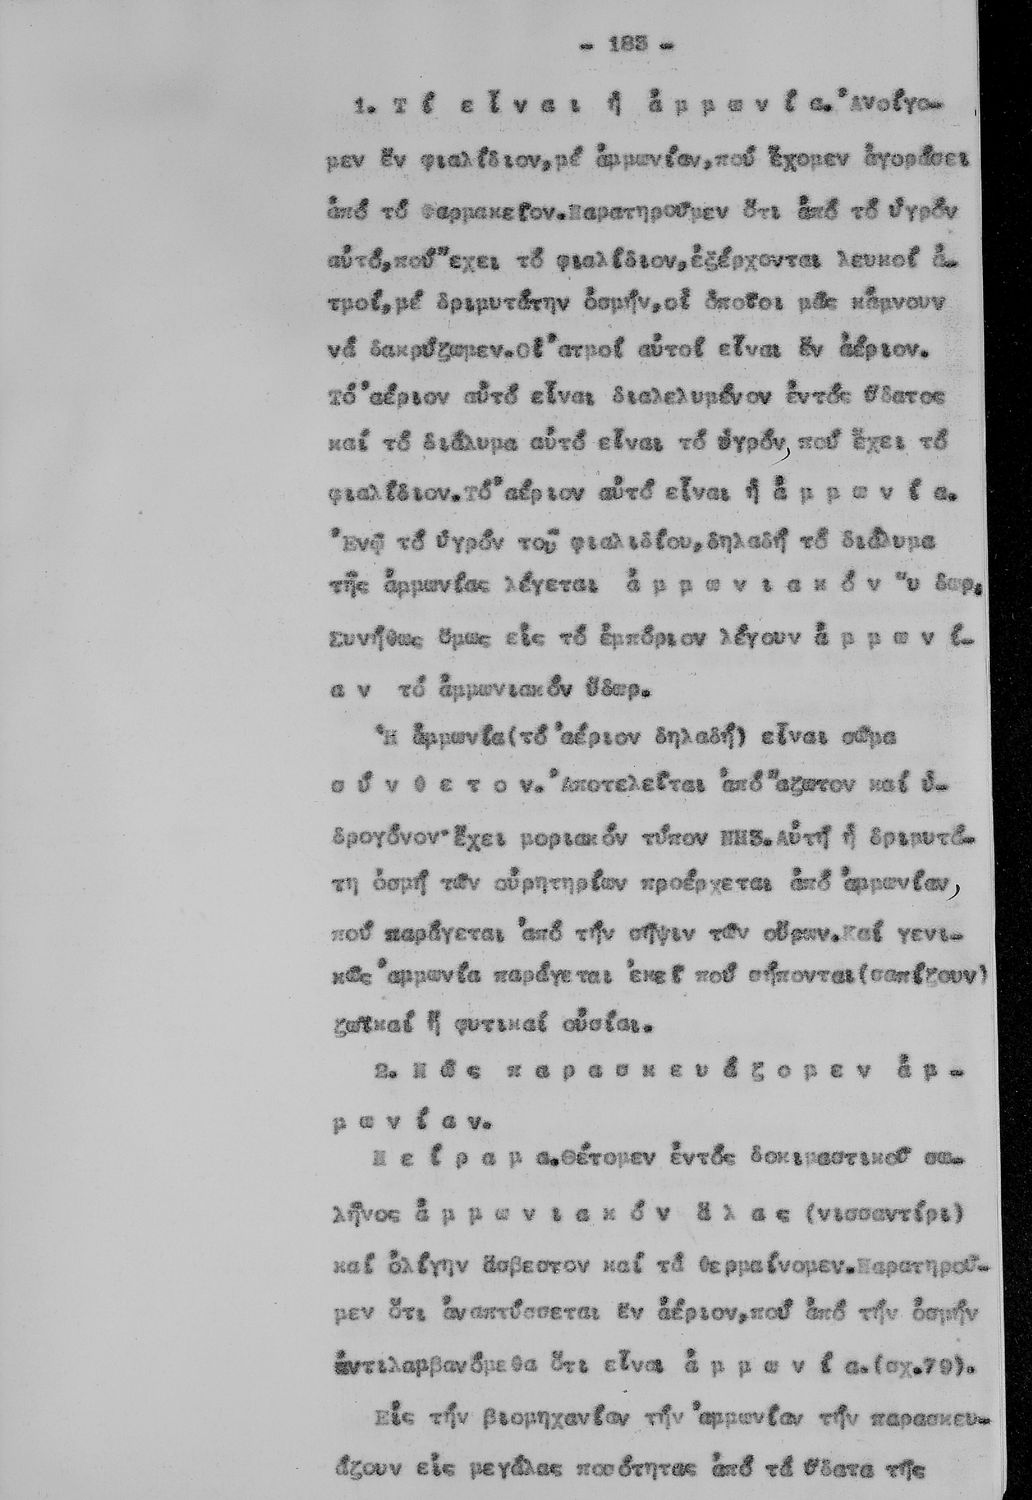 - 183 -
1. Τ ί ε ἶ ν α ι ἡ ἀ μ μ ω ν ί α. Ἀνοίγο-
μεν ἕν φιαλίδιον, μέ ἀμμωνίαν, πού ἔχομεν ἀγοράσει
ἀπό τό Φαρμακεῖον. Παρατηροῦμεν ὅτι ἀπό τό ὑγρόν
αὐτό, πού ἔχει τό φιαλίδιον, ἐξέρχονται λευκοί ἀ-
τμοί, μέ δριμυτάτην ὀσμήν, οἱ ὁποῖοι μᾶς κάμνουν
νά δακρύζωμεν. Οἱ ἀτμοί αὐτοί εἶναι ἕν ἀέριον.
Τό ἀέριον αὐτό εἶναι διαλελυμένον ἐντός ὕδατος
καί τό διάλυμα αὐτό εἶναι τό ὑγρόν, πού ἔχει τό
φιαλίδιον. Τό ἀέριον αὐτό εἶναι ἡ ἀ μ μ ω ν ί α.
Ἐνῷ τό ὑγρόν τοῦ φιαλιδίου, δηλαδή τό διάλυμα
τῆς ἀμμωνίας λέγεται ἀ μ μ ω ν ι α κ ό ν ὕ δωρ.
Συνήθως ὅμως εἰς τό ἐμπόριον λέγουν ἀ μ μ ω ν ί-
α ν τό ἀμμωνιακόν ὕδωρ.
Ἡ ἀμμωνία (τό ἀέριον δηλαδή) εἶναι σῶμα
σ ύ ν θ ε τ ο ν. Ἀποτελεῖται ἀπό ἄζωτον καί ὑ-
δρογόνον· ἔχει μοριακόν τύπον NH3. Αὐτή ἡ δριμυτά-
τη ὀσμή τῶν οὐρητηρίων προέρχεται ἀπό ἀμμωνίαν,
πού παράγεται ἀπό τήν σῆψιν τῶν οὔρων. Καί γενι-
κῶς ἀμμωνία παράγεται ἐκεῖ πού σήπονται (σαπίζουν)
ζωϊκαί ἤ φυτικαί οὐσίαι.
2. Π ῶ ς π α ρ α σ κ ε υ ά ζ ο μ ε ν ἀ μ -
μ ω ν ί α ν.
Π ε ί ρ α μ α. Θέτομεν ἐντός δοκιμαστικοῦ σω-
λῆνος ἀ μ μ ω ν ι α κ ό ν ἅ λ α ς (νισσαντίρι)
καί ὀλίγην ἄσβεστον καί τά θερμαίνομεν. Παρατηροῦ-
μεν ὅτι ἀναπτύσσεται ἕν ἀέριον, πού ἀπό τήν ὀσμήν
ἀντιλαμβανόμεθα ὅτι εἶναι ἀ μ μ ω ν ί α. (σχ. 79).
Εἰς τήν βιομηχανίαν τήν ἀμμωνίαν τήν παρασκευ-
άζουν εἰς μεγάλας ποσότητας ἀπό τά ὕδατα τῆς